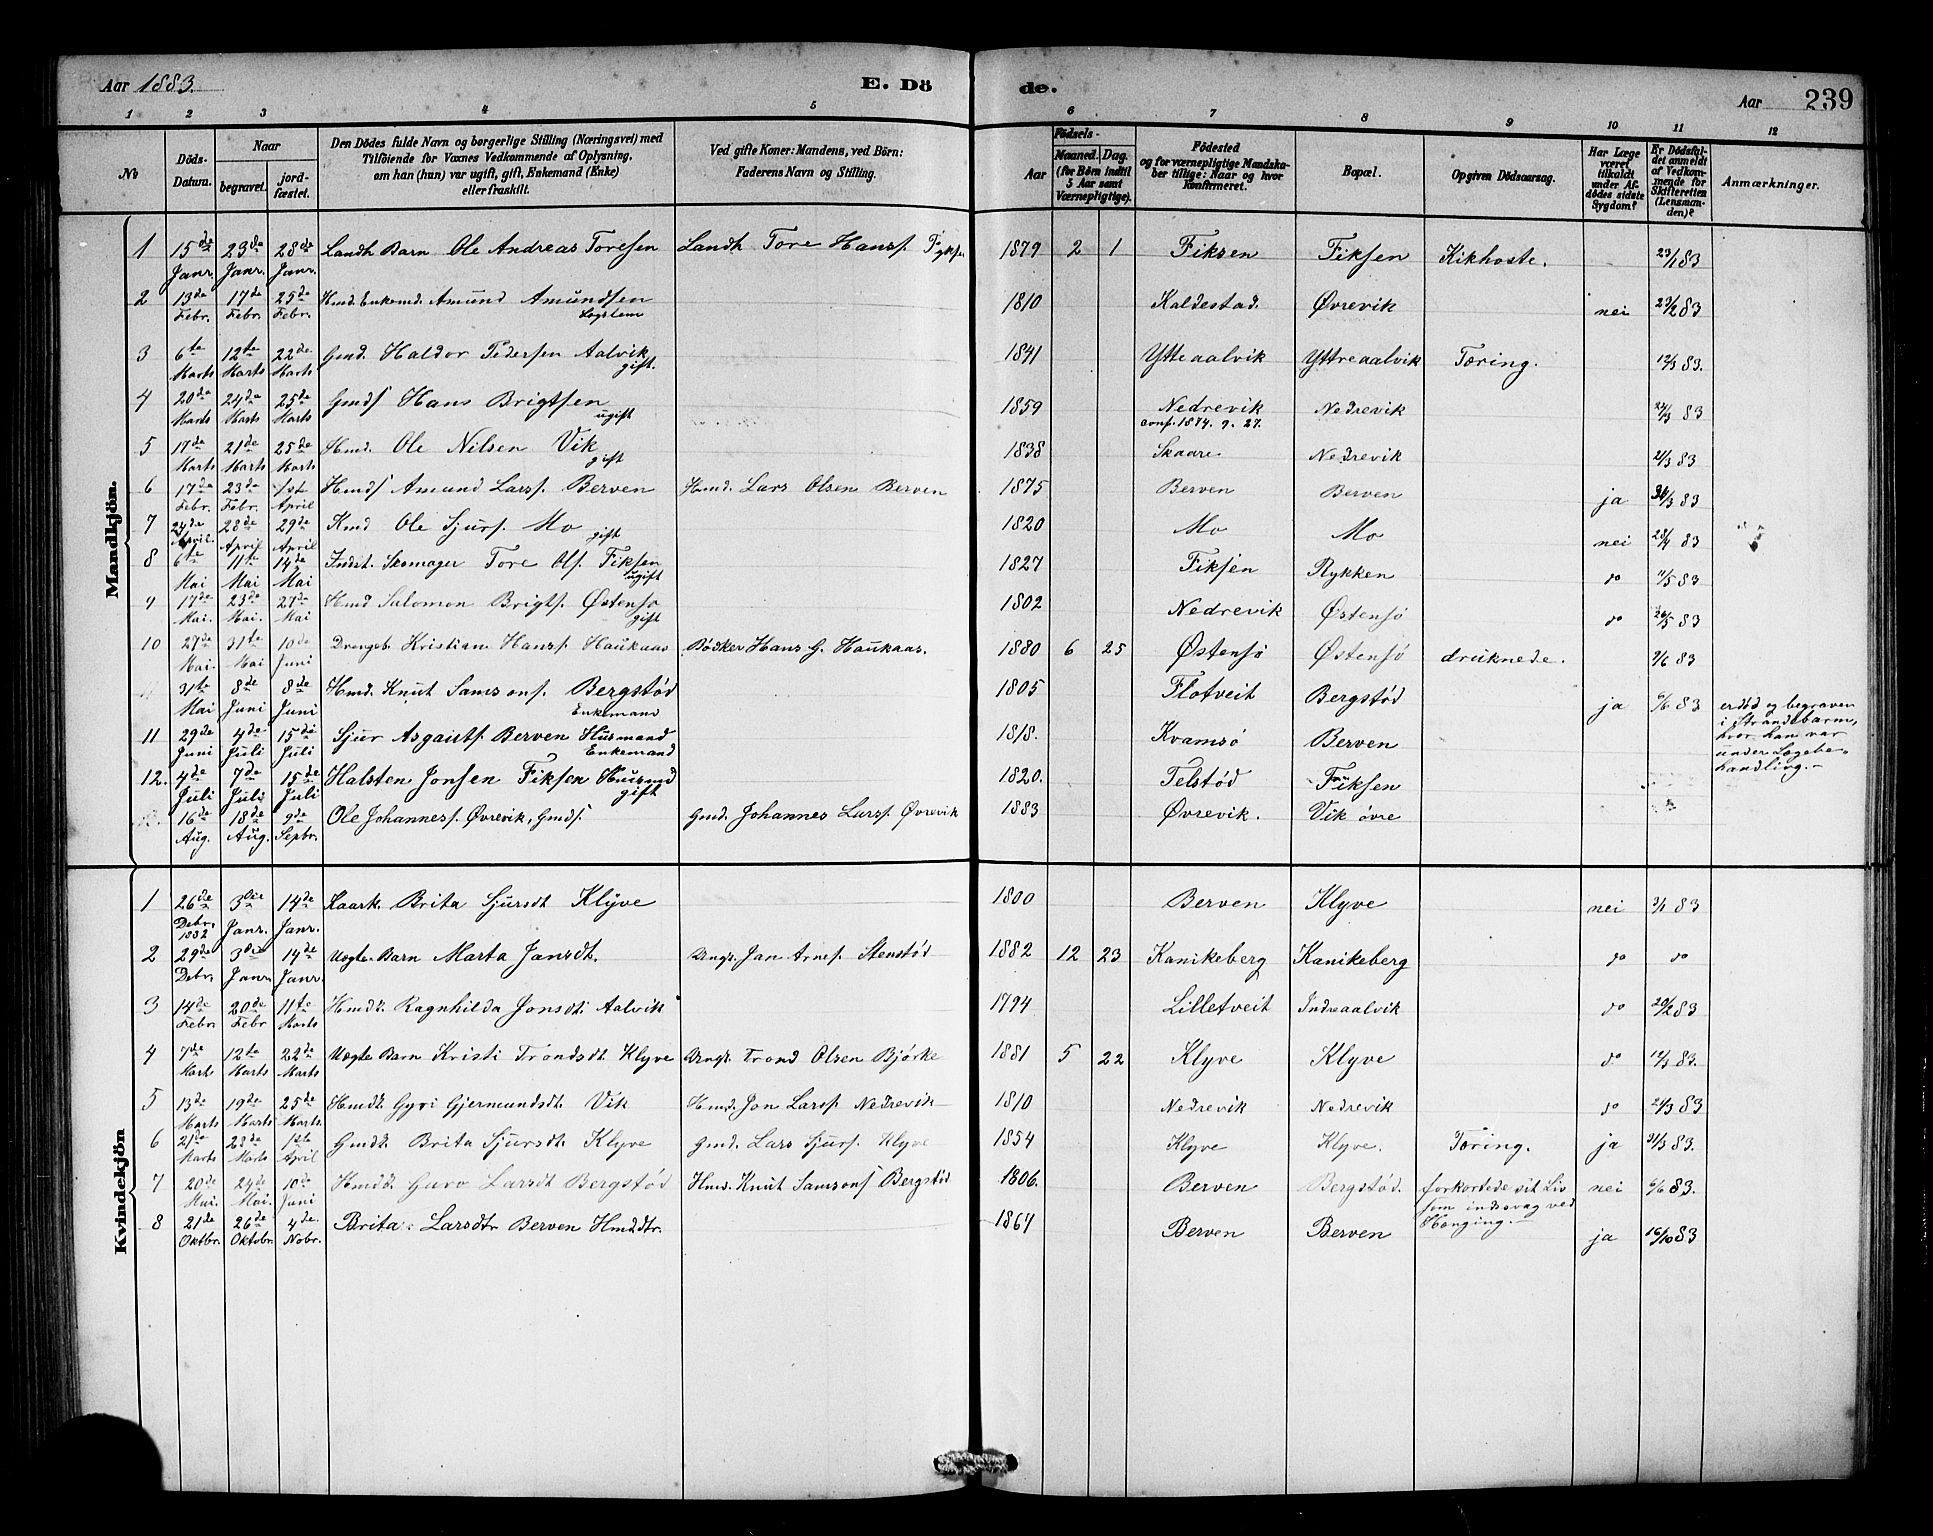 Aar 1883. E. Dö de. Aar 239
1 2 3 4 5 6 7 8 9 10 11 12
No
Döds-Datum.
Naar
begravet.
jord-fæstet.
Den Dödes fulde Navn og borgerlige Stilling (Næringsvei) med
Tilföiende for Voxnes Vedkommende af Oplysning,
om han (hun) var ugift, gift, Enkemand (Enke)
eller fraskilt.
Ved gifte Koner: Mandens, ved Börn:
Faderens Navn og Stilling.
Födsels-
Aar
Maaned. Dag.
(for Börn indtil
5 Aar samt
Værnepligtige).
Födested
og for værnepligtige Mandska-
ber tillige: Naar og hvor
konfirmeret.
Bopæl.
Opgiven Dödsaarsag.
Har Læge
været
tilkaldt
under Af-
dödes sidste
Sygdom?
Er Dödsfal-
det anmeldt
af Vedkom-
mende for
Skifteretten
(Lensman-
den)?
Anmærkninger.
Mandkjön.
1 15de Janr. 23de Janr. 28de Janr. Landh Barn Ole Andreas Toresen Landh Tore Hanss. Fykse 1879 2 1 Fiksen Fiksen Kikhoste. 23/1 83
2 13de Febr. 17de Febr. 25de Febr. Kmd. Enkemd. Amund Amundsen 1810 Kaldestad. Øvrevik nei 23/2 83
3 6te Marts 12te Marts 22de Marts Gmd. Haldor Pedersen Aalvik gift. 1841 Ytteaalvik Yttreaalvik Tæring. 12/3 83.
4 20de Marts 24de Marts 25de Marts Gmds Hans Brigtsen ugift 1859 Nedrevik conf. 1874. 9. 27. Nedrevik 24/3 83
5 17de Marts 21de Marts 25de Marts Hmd. Ole Nilsen Vik gift 1838 Skaare Nedrevik 21/3 83
6 17de Febr. 23de Febr. 1st April Hmds Amund Larss. Berven Hmd. Lars Olsen Berven 1875 Berven Berven ja 83
7 24de April. 28de April 29de April Kmd Ole Sjurs. Mo gift 1820 Mo Mo nei 28/4 83
8 6te Mai 11te Mai 14de Mai Indst. Skomager Tore Ols. Fiksen ugift 1827 Fiksen Rykken do 11/5 83
9 17de Mai. 23de Mai. 27de Mai Hmd Salomon Brigts. Østensø gift 1802 Nedrevik Østensø do 26/5 83
10 27de Mai. 31te Mai 10de Juni Drengeb. Kristian Hanss. Haukaas Bødker Hans G. Haukaas. 1880 6 25 Østensø Østensø druknede. 2/6 83
31te Mai 8de Juni 8de Juni Hmd. Knut Samsons. Bergstød Enkemand 1805 Flotveit Bergstød ja 6/6 83 erdød og begraven
i Strandebarm,
hvor han var
under Lægebe-
handling.-
11 29de Juni 4de Juli 15de Juli Sjur Asgauts. Berven Husmand Enkemand 1818. Kvamsø Berven
12. 4de Juli 7de Juli 15de Juli Halsten Jonsen Fiksen Husmd gift 1820. Telstød Fiksen
16de Aug. 18de Aug. 9de Septbr. Ole Johanness. Øvrevik, Gmds. Gmd. Johannes Larss. Øvrevik 1883 Øvrevik. Vik øvre
Kvindekjön
1 26de Debr. 1882 3die Janr. 14de Janr. Kaark. Brita Sjursdt Klyve 1800 Berven Klyve nei 3/1 83
2 29de Debr. 3die Janr. 14de Janr. Uegte Barn Marta Jansdt. Ungk. Jan Arnes. Stenstød 1882 12 23 Kanikeberg Kanikeberg do do
3 14de Febr. 20de Febr 11te Marts Hmdk. Ragnhilda Jonsdt. Aalvik 1794 Lilletveit Indreaalvik do 20/2 83
4 7de Marts 12te Marts 22de Marts Uegte Barn Kristi Trondsdt. Klyve Ungk. Trond Olsen Bjørke 1881 5 22 Klyve Klyve do 12/3 83.
5 13de Marts 19de Marts 25de Marts. Hmdk. Gyri Gjermundsdt. Vik Hmd. Jon Larss. Nedrevik 1810 Nedrevik Nedrevik do 21/3 83
6 21de Marts 28de Marts 1ste April Gmdk. Brita Sjursdt. Klyve Gmd. Lars Sjurs. Klyve 1854 Klyve Klyve. Tæring. ja 31/3 83.
7 20de Mai. 24de Mai. 10de Juni Hmdk. Guro Larsdt Bergstød Hmd. Knut Samsons Bergstød 1806. Berven Bergstød. forkortede sit Liv
som indsvag ved
Hænging.- nei 6/6 83.
8 21de Oktbr. 26de Oktobr. 4de Nobr. Brita Larsdtr Berven Hmddtr. 1867 Berven Berven ja 16/10 83